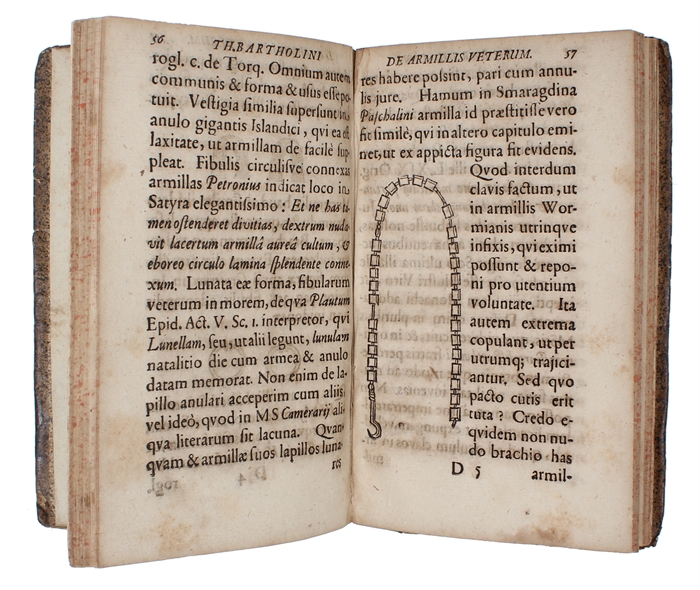 56 TH.BARTHOLINI
rogl. c. de Torq. Omnium autem
communis & forma & usus esse po-
tuit. Vestigia similia supersunt in
anulo gigantis Islandici, qvi ea est
laxitate, ut armillam de facile sup-
pleat. Fibulis circulisve connexas
armillas Petronius indicat loco in
Satyra elegantissimo: Et ne has ta-
men ostenderet divitias, dextrum nuda-
vit lacertum armillâ aureâ cultum, &
eboreo circulo lamina splendente conne-
xum. Lunata eæ forma, fibularum
veterum in morem, de qva Plautum
Epid. Act. V. Sc. 1. interpretor, qvi
Lunellam, seu, ut alii legunt, lunulam
natalitio die cum armea & anulo
datam memorat. Non enim de la-
pillo anulari acceperim cum aliis,
vel ideò, qvod in MS Camerarij ali-
qva literarum sit lacuna. Qvan-
qvam & armillæ suos lapillos luna-
res
DE ARMILLIS VETERUM. 57
res habere possint, pari cum annu-
lis jure. Hamum in Smaragdina
Paschalini armilla id præstitisse vero
fit similè, qvi in altero capitulo emi-
net, ut ex appicta figura fit evidens.
Qvod interdum
clavis factum, ut
in armillis Wor-
mianis utrinqve
infixis, qvi eximi
possunt & repo-
ni pro utentium
voluntate. Ita
autem extrema
copulant, ut per
utrumq; trajici-
antur. Sed qvo
pacto cutis erit
tuta? Credo e-
qvidem non nu-
do brachio has
D 5 armil-